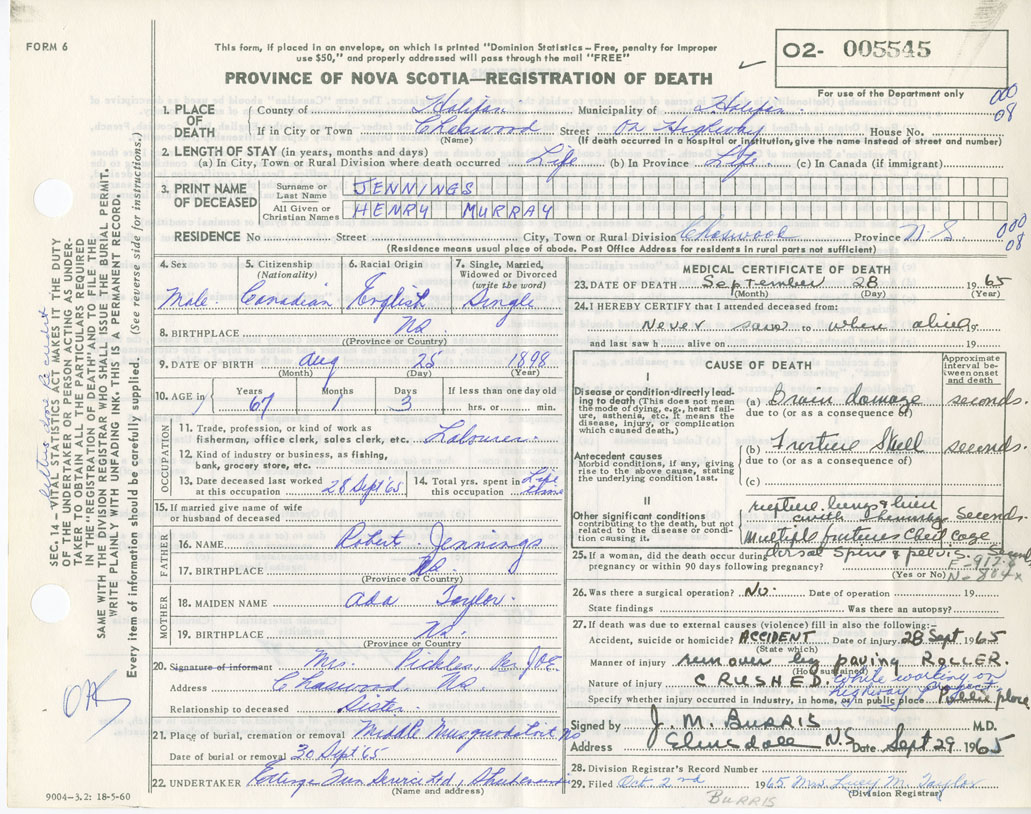 FORM 6
This form, if placed in an envelope, on which is printed "Dominion Statistics – Free, penalty for improper
use $50," and properly addressed will pass through the mail "FREE"
O2- 005545
PROVINCE OF NOVA SCOTIA—REGISTRATION OF DEATH
For use of the Department only
000
08
1. PLACE OF DEATH
County of Halifax Municipality of Halifax
If in City or Town Chaswood Street On Highway House No.
(Name) (If death occurred in a hospital or institution, give the name instead of street and number)
2. LENGTH OF STAY (in years, months and days)
(a) In City, Town or Rural Division where death occurred Life (b) In Province Life (c) In Canada (if immigrant)
3. PRINT NAME OF DECEASED
Surname or Last Name JENNINGS
All Given or Christian Names HENRY MURRAY
RESIDENCE No Street City, Town or Rural Division Chaswood Province N.S.
000
08
(Residence means usual place of abode. Post Office Address for residents in rural parts is not sufficient)
4. Sex Male
5. Citizenship (Nationality) Canadian
6. Racial Origin English
7. Single, Married, Widowed or Divorced (write the word) Single
8. BIRTHPLACE NS
(Province or Country)
9. DATE OF BIRTH Aug 25 1898
(Month) (Day) (Year)
10. AGE in Years 67 Months 1 Days 3 If less than one day old hrs. or min.
OCCUPATION
11. Trade, profession, or kind of work as fisherman, office clerk, sales clerk, etc. Labourer
12. Kind of industry or business, as fishing, bank, grocery store, etc.
13. Date deceased last worked at this occupation 28 Sept 65
14. Total yrs. spent in this occupation Life time
15. If married give name of wife or husband of deceased
FATHER
16. NAME Robert Jennings
17. BIRTHPLACE NS.
(Province or Country)
MOTHER
18. MAIDEN NAME Ada Taylor
19. BIRTHPLACE NS.
(Province or Country)
20. Signature of informant Mrs. Pickles, JOE
Address Chaswood NS.
Relationship to deceased Sister
21. Place of burial, cremation or removal Middle Musquodoboit NS
Date of burial or removal 30 Sept 65
22. UNDERTAKER Ettinger Fun Service Ltd, Shubenacadie
(Name and address)
9004–3.2: 18-5-60
MEDICAL CERTIFICATE OF DEATH
23. DATE OF DEATH September 28 1965
(Month) (Day) (Year)
24. I HEREBY CERTIFY that I attended deceased from:
Never saw to when alive 19
and last saw h alive on 19
CAUSE OF DEATH
Approximate interval between onset and death
I
Disease or condition directly leading to death (This does not mean the mode of dying, e.g., heart failure, asthenia, etc. It means the disease, injury, or complication which caused death.)
(a) Brain damage seconds.
due to (or as a consequence of)
Antecedent causes
Morbid conditions, if any, giving rise to the above cause, stating the underlying condition last.
(b) Skull seconds.
due to (or as a consequence of)
(c)
II
Other significant conditions contributing to the death, but not related to the disease or condition causing it.
lung & liver
with seconds.
Multiple Chest Cage
dorsal Spine & pelvis.
25. If a woman, did the death occur during pregnancy or within 90 days following pregnancy?
(Yes or No)
N-804x
26. Was there a surgical operation? No. Date of operation 19
State findings Was there an autopsy?
27. If death was due to external causes (violence) fill in also the following:–
Accident, suicide or homicide? ACCIDENT Date of injury 28 Sept 1965
(State which)
Manner of injury run over by paving ROLLER.
(How sustained)
Nature of injury CRUSHED. While working on highway
Specify whether injury occurred in industry, in home, or in public place Public place
Signed by J. M. BURRIS M.D.
Address Elmsdale NS Date Sept 29 1965
28. Division Registrar's Record Number
29. Filed Oct. 2nd 1965 Mrs Lucy M. Taylor
(Division Registrar)
BURRIS
SEC. 14 – VITAL STATISTICS ACT MAKES IT THE DUTY
OF THE UNDERTAKER OR PERSON ACTING AS UNDER-
TAKER TO OBTAIN ALL THE PARTICULARS REQUIRED
IN THE "REGISTRATION OF DEATH" AND TO FILE THE
SAME WITH THE DIVISION REGISTRAR WHO SHALL ISSUE THE BURIAL PERMIT.
WRITE PLAINLY WITH UNFADING INK. THIS IS A PERMANENT RECORD.
Every item of information should be carefully supplied. (See reverse side for instructions.)